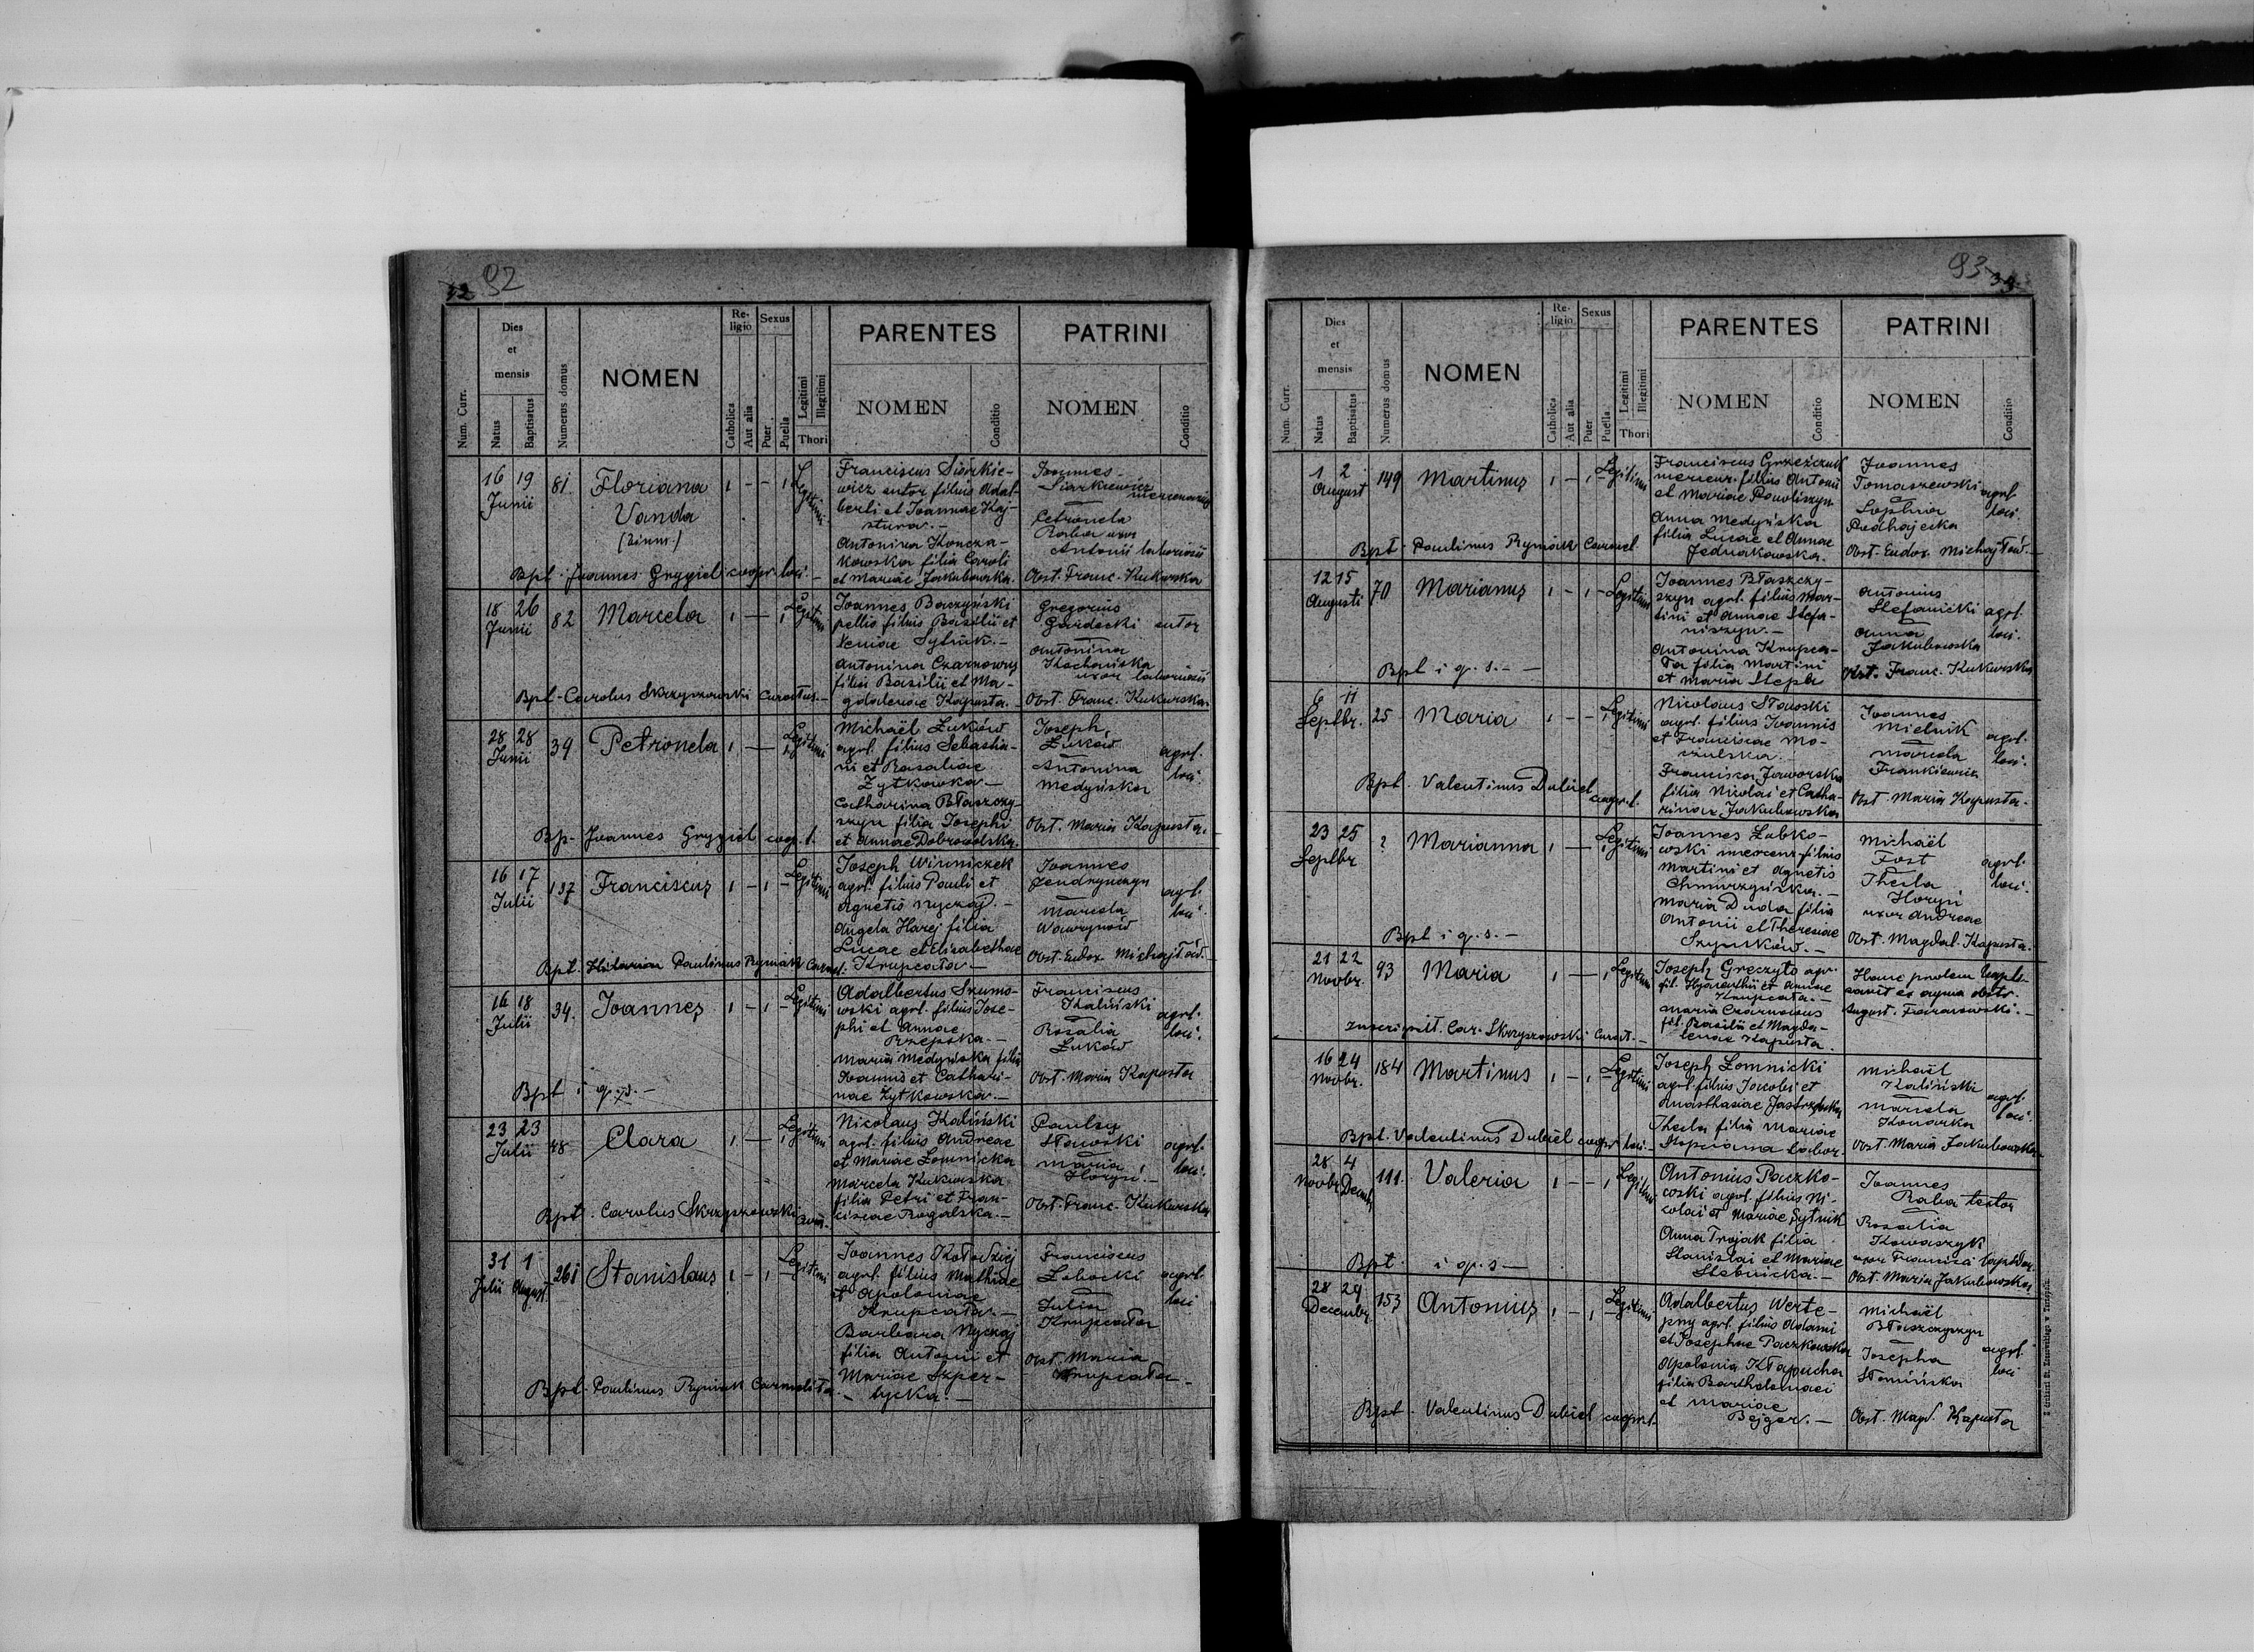 32 92
Num. Curr.
Dies et mensis
Natus
Baptisatus
Numerus domus
NOMEN
Religio
Catholica
Aut alia
Sexus
Puer
Puella
Legitimi
Illegitimi
Thori
PARENTES
NOMEN
Conditio
PATRINI
NOMEN
Conditio
16 19
Junii
81.
Floriana
Vanda
(binm.)
Legitimi
Franciscus Siarkie-
wicz sutor filius Adal-
berti et Joannae Kaj-
stura.-
Antonina Koncza-
kowska filia Caroli
et Mariae Jakubowska.
Joannes
Siarkiewicz
mercenarius
Petronela
Raba uxor
Antonii laboriosi
Obst. Franc. Kukurska
Bpt. Joannes Grygiel coopr. loci.-
18 26
Junii
82
Marcela
Legitimi
Joannes Baczyński
pellio filius Basilii et
Xeniae Sytnik.-
Antonina Czarnowus
filia Basilii et Ma-
gdalenae Kapusta.
Gregorius
Gardecki sutor
Antonina
Kochańska
uxor laboriosi
Obst. Franc. Kukurska.
Bpt. Carolus Skrzyszowski Curatus.-
28 28
Junii
39
Petronela
Legitimi
Michaël Łuków
agrl. filius Sebastia-
ni et Rosaliae
Żytkowska-
Catharina Błaszczy-
szyn filia Josephi
et Annae Dobrowolska.
Joseph
Łuków
Antonina
Medyńska
agrl.
loci.
Obst. Maria Kapusta.
Bp- Joannes Grygiel coop. l.
16 17
Julii
137
Franciscus
Legitimi
Joseph Winniczek
agrl. filius Pauli et
Agnetis Nyczaj.-
Angela Harej filia
Lucae et Elisabethae
Krupcała-
Joannes
Jendrzyszyn
Marcela
Wawrynów
agrl.
loci.
Obst. Eudox. Michajłów.-
Bpt. Paulinus Ryniak Carmel.
16 18
Julii
34.
Joannes
Legitimi
Adalbertus Szumo-
wski agrl. filius Jose-
phi et Annae
Rzepska.-
Maria Medyńska filia
Joannis et Cathari-
nae Żytkowska.-
Franciscus
Kaliński
Rosalia
Łuków
agrl.
loci.
Obst. Maria Kapusta
Bpt i q. s.-
23 23
Julii
48
Clara
Legitimi
Nicolaus Kaliński
agrl. filius Andreae
et Mariae Łomnicka
Marcela Kukurska
filia Petri et Fran-
ciscae Rogalska.-
Paulus
Stawski
Maria
Horyn.-
agrl.
loci.
Obst. Franc. Kukurska
Bpt. Carolus Skrzyszowski
31 1
Julii August.
261
Stanislaus
Legitimi
Joannes Kołodziej
agrl. filius Mathiae
et Apoloniae
Krupcała.-
Barbara Nyczaj
filia Antonii et
Mariae Szper-
- łycka.-
Franciscus
Zabocki
Julia
Krupcała
agrl.
loci
Obst. Maria
Krupcała-
Bpt. Paulinus Ryniak Carmelita
93 33
Num. Curr.
Dies et mensis
Natus
Baptisatus
Numerus domus
NOMEN
Religio
Catholica
Aut alia
Sexus
Puer
Puella
Legitimi
Illegitimi
Thori
PARENTES
NOMEN
Conditio
PATRINI
NOMEN
Conditio
1 2
August
149
Martinus
Legitimi
Franciscus Grzeszczuk
mercenr. filius Antonii
et Mariae Pawliszyn
Anna Medyńska
filia Lucae et Annae
Jednakowska.
Joannes
Tomaszewski
Sophia
Podhajecka
agrl.
loci.
Obst. Eudox. Michajłów.-
Bpt. Paulinus Ryniak Carmel.
12 15
Augusti
70
Marianus
Legitimi
Joannes Błaszczy-
szyn agrl. filius Mar-
tini et Annae Stefa-
niszyn.-
Antonina Krupca-
ła filia Martini
et Maria Stępla
Antonius
Stefanicki
Anna
Jakubowska
agrl.
loci.
Obst. Franc. Kukurska
Bpt i q. s.-
6 11
Septbr.
25
Maria
Legitimi
Nicolaus Stawski
agrl. filius Joannis
et Franciscae Mo-
zulska.-
Francisca Jaworska
filia Nicolai et Catha-
rinae Jakubowska
Joannes
Mielnik
Marcela
Frankiewicz
agrl.
loci.
Obst. Maria Kapusta-
Bpt. Valentinus Dubiel coopr. l.
23 25
Septbr
?
Marianna
Legitimi
Joannes Łabko-
wski mercenr. filius
Martini et Agnetis
Chmurzyńska.-
Maria Duda filia
Antonii et Theresiae
Szymków.-
Michaël
Fost
Thecla
Horyn
uxor Andreae
agrl.
loci.
Obst. Magdal. Kapusta.
Bpt i q. s.-
21 22
Novbr.
93
Maria
Legitimi
Joseph Greczyło agr.
fil. Hyacinthi et Annae
Krupcała.-
Maria Czarnowus
fil. Basilii et Magda-
lenae Kapusta.
Hanc prolem bapti-
savit ex aqua obstr.
August. Taranowski.-
Inscripsit. Car. Skrzyszowski Curat.-
16 24
Novbr.
184
Martinus
Legitimi
Joseph Łomnicki
agrl. filius Jacobi et
Anasthasiae Jastrzębska
Thecla filia Mariae
Stepniana labor.
Michaël
Kaliński
Marcela
Konarka
agrl.
loci.
Obst. Maria Jakubowska.
Bpt. Valentinus Dubiel coopr. loci.-
28 4
Novbr Decembr.
111.
Valeria
Legitimi
Antonius Paczko-
wski agrl. filius Ni-
colai et Mariae Sytnik
Anna Trojak filia
Stanislai et Mariae
Stebnicka.-
Joannes
Raba textor
Rosalia
Kowaszyk
Obst. Maria Jakubowska
Bpt. i q. s-
28 29
Decembr.
153
Antonius
Legitimi
Adalbertus Werte-
pny agrl. filius Adami
et Josephae Paczkowska
Apolonia Kłapucha
filia Bartholomaei
et Mariae
Bejger.-
Michaël
Błaszczyszyn
Josepha
Słomińska
agrl.
loci
Obst. Magd. Kapusta
Bpt. Valentinus Dubiel coopr l.